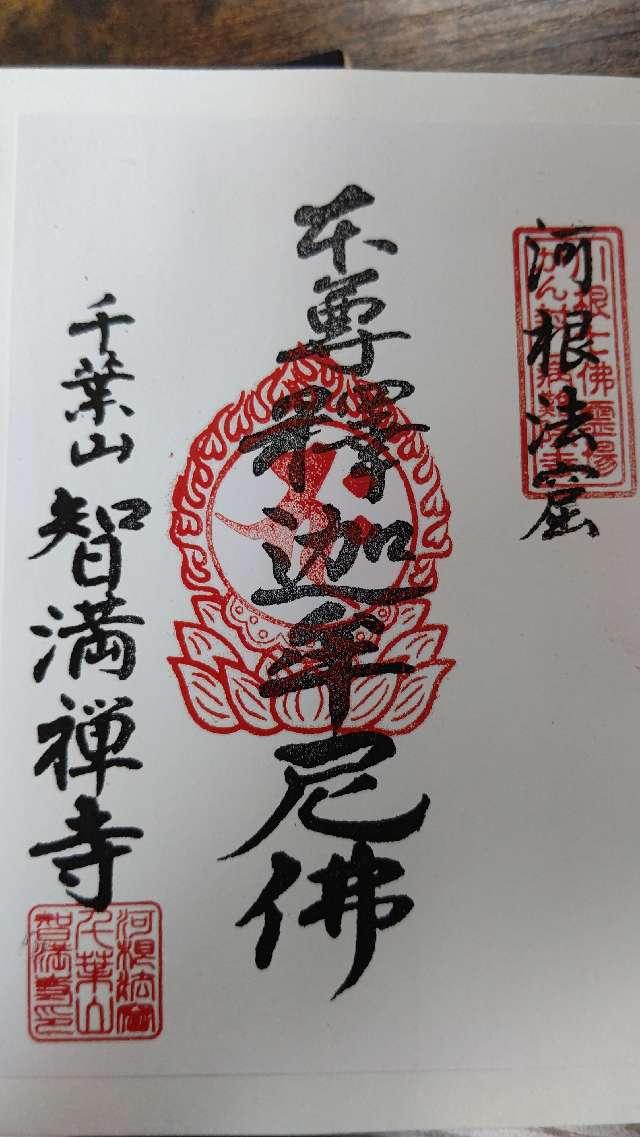 河根法窟
本尊釋迦牟尼佛
千葉山 智満禅寺
河根法窟
千葉山
智満寺印